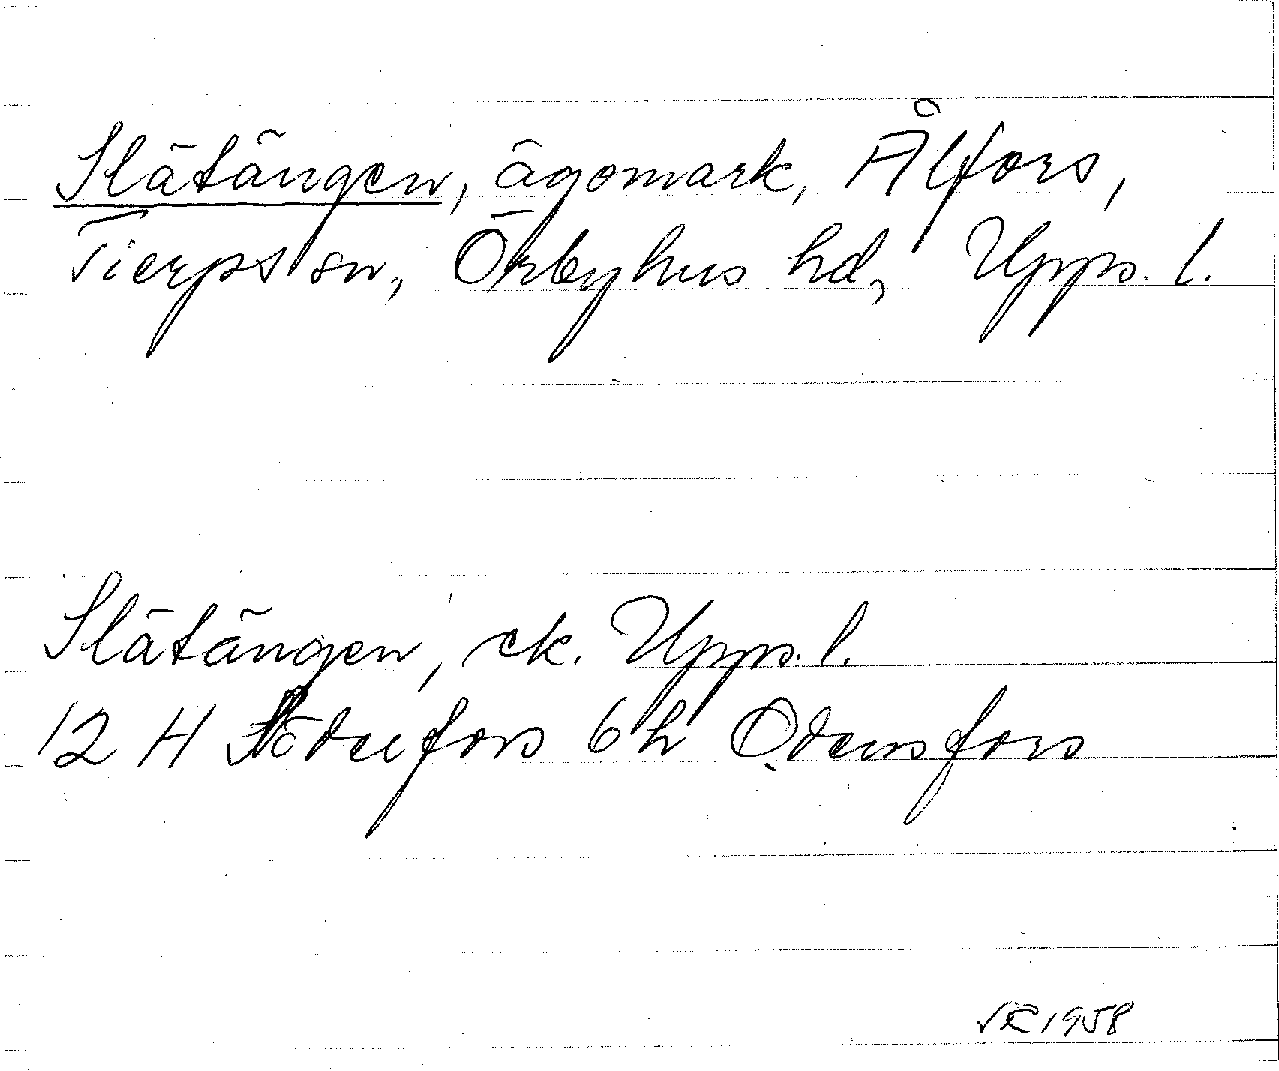 Slätängen, ägomark, Ålfors,
Tierps sn, Örbyhus hd, Upps. l.
Slätängen, ek. Upps. l.
12 H Söderfors 6 h Odensfors
1958